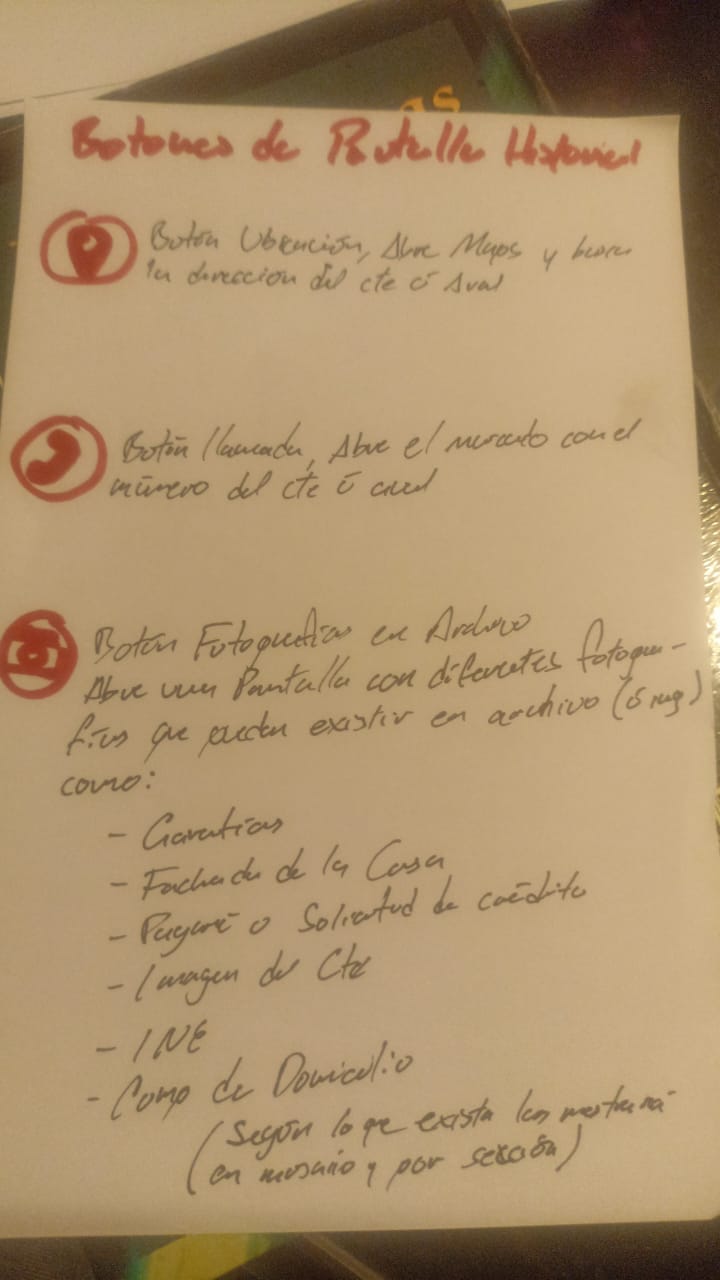 as
Botones de Pantalla Historial
Botón Ubicación, Abre Maps y busca
la dirección del cte ó Aval
Botón llamada, Abre el marcado con el
número del cte ó aval
Botón Fotografías en Archivo
Abre una Pantalla con diferentes fotogra-
fías que puedan existir en archivo (ó mg)
como:
- Garantías
- Fachada de la Casa
- Pagaré o Solicitud de crédito
- Imagen del Cte
- INE
- Comp de Domicilio
(Según lo que exista las mostrará
en mosaico y por sección)